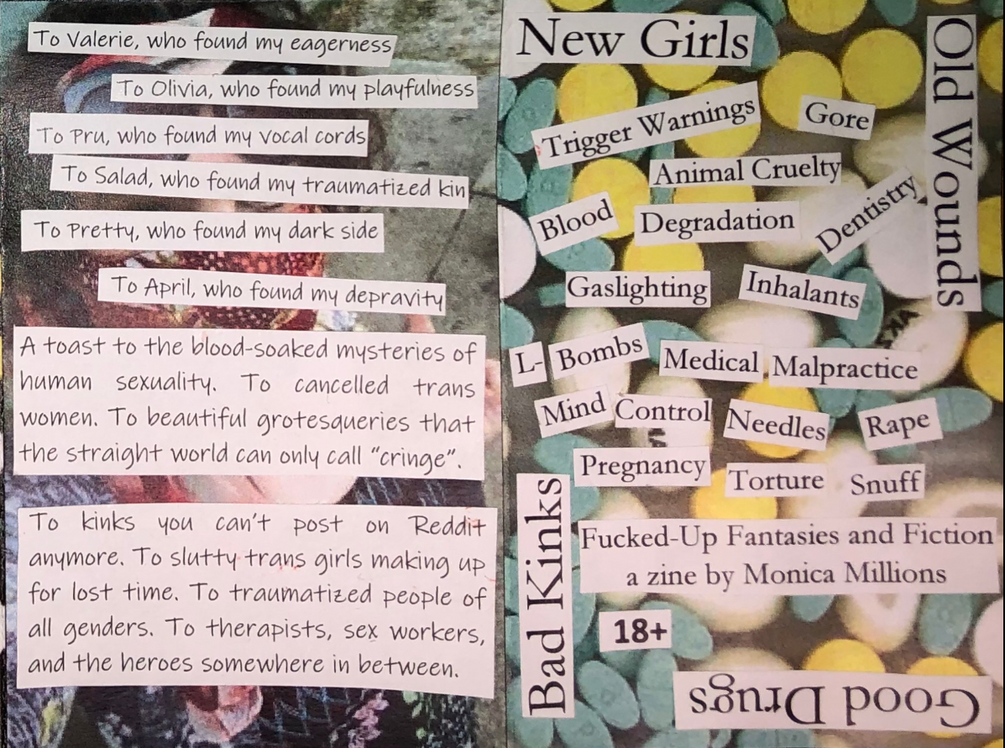 To Valerie, who found my eagerness
To Olivia, who found my playfulness
To Pru, who found my vocal cords
To Salad, who found my traumatized kin
To Pretty, who found my dark side
To April, who found my depravity
A toast to the blood-soaked mysteries of
human sexuality. To cancelled trans
women. To beautiful grotesqueries that
the straight world can only call “cringe”.
To kinks you can't post on Reddit
anymore. To slutty trans girls making up
for lost time. To traumatized people of
all genders. To therapists, sex workers,
and the heroes somewhere in between.
New Girls
Old Wounds
Trigger Warnings
Gore
Animal Cruelty
Blood
Degradation
Dentistry
Gaslighting
Inhalants
L-Bombs
Medical Malpractice
Mind Control
Needles
Rape
Pregnancy
Torture
Snuff
Fucked-Up Fantasies and Fiction
a zine by Monica Millions
18+
Bad Kinks
Good Drugs